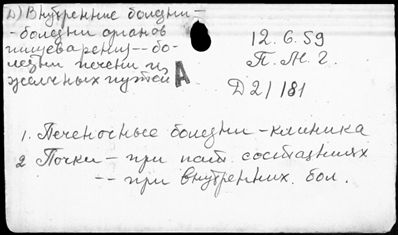 Д) Внутренние болезни -
- болезни органов
пищеварения -- бо-
лезни печени и
желчных путей А
12.6.59
П. М. Г.
Д21/181
1. Печеночные болезни - клиника
2 Почки - при пат. состояниях
-- при внутренних. бол.